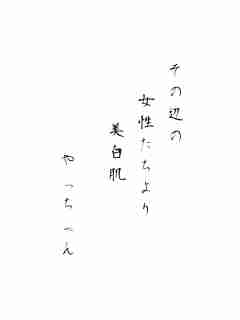 その辺の
女性たちより
美白肌
やっちっん